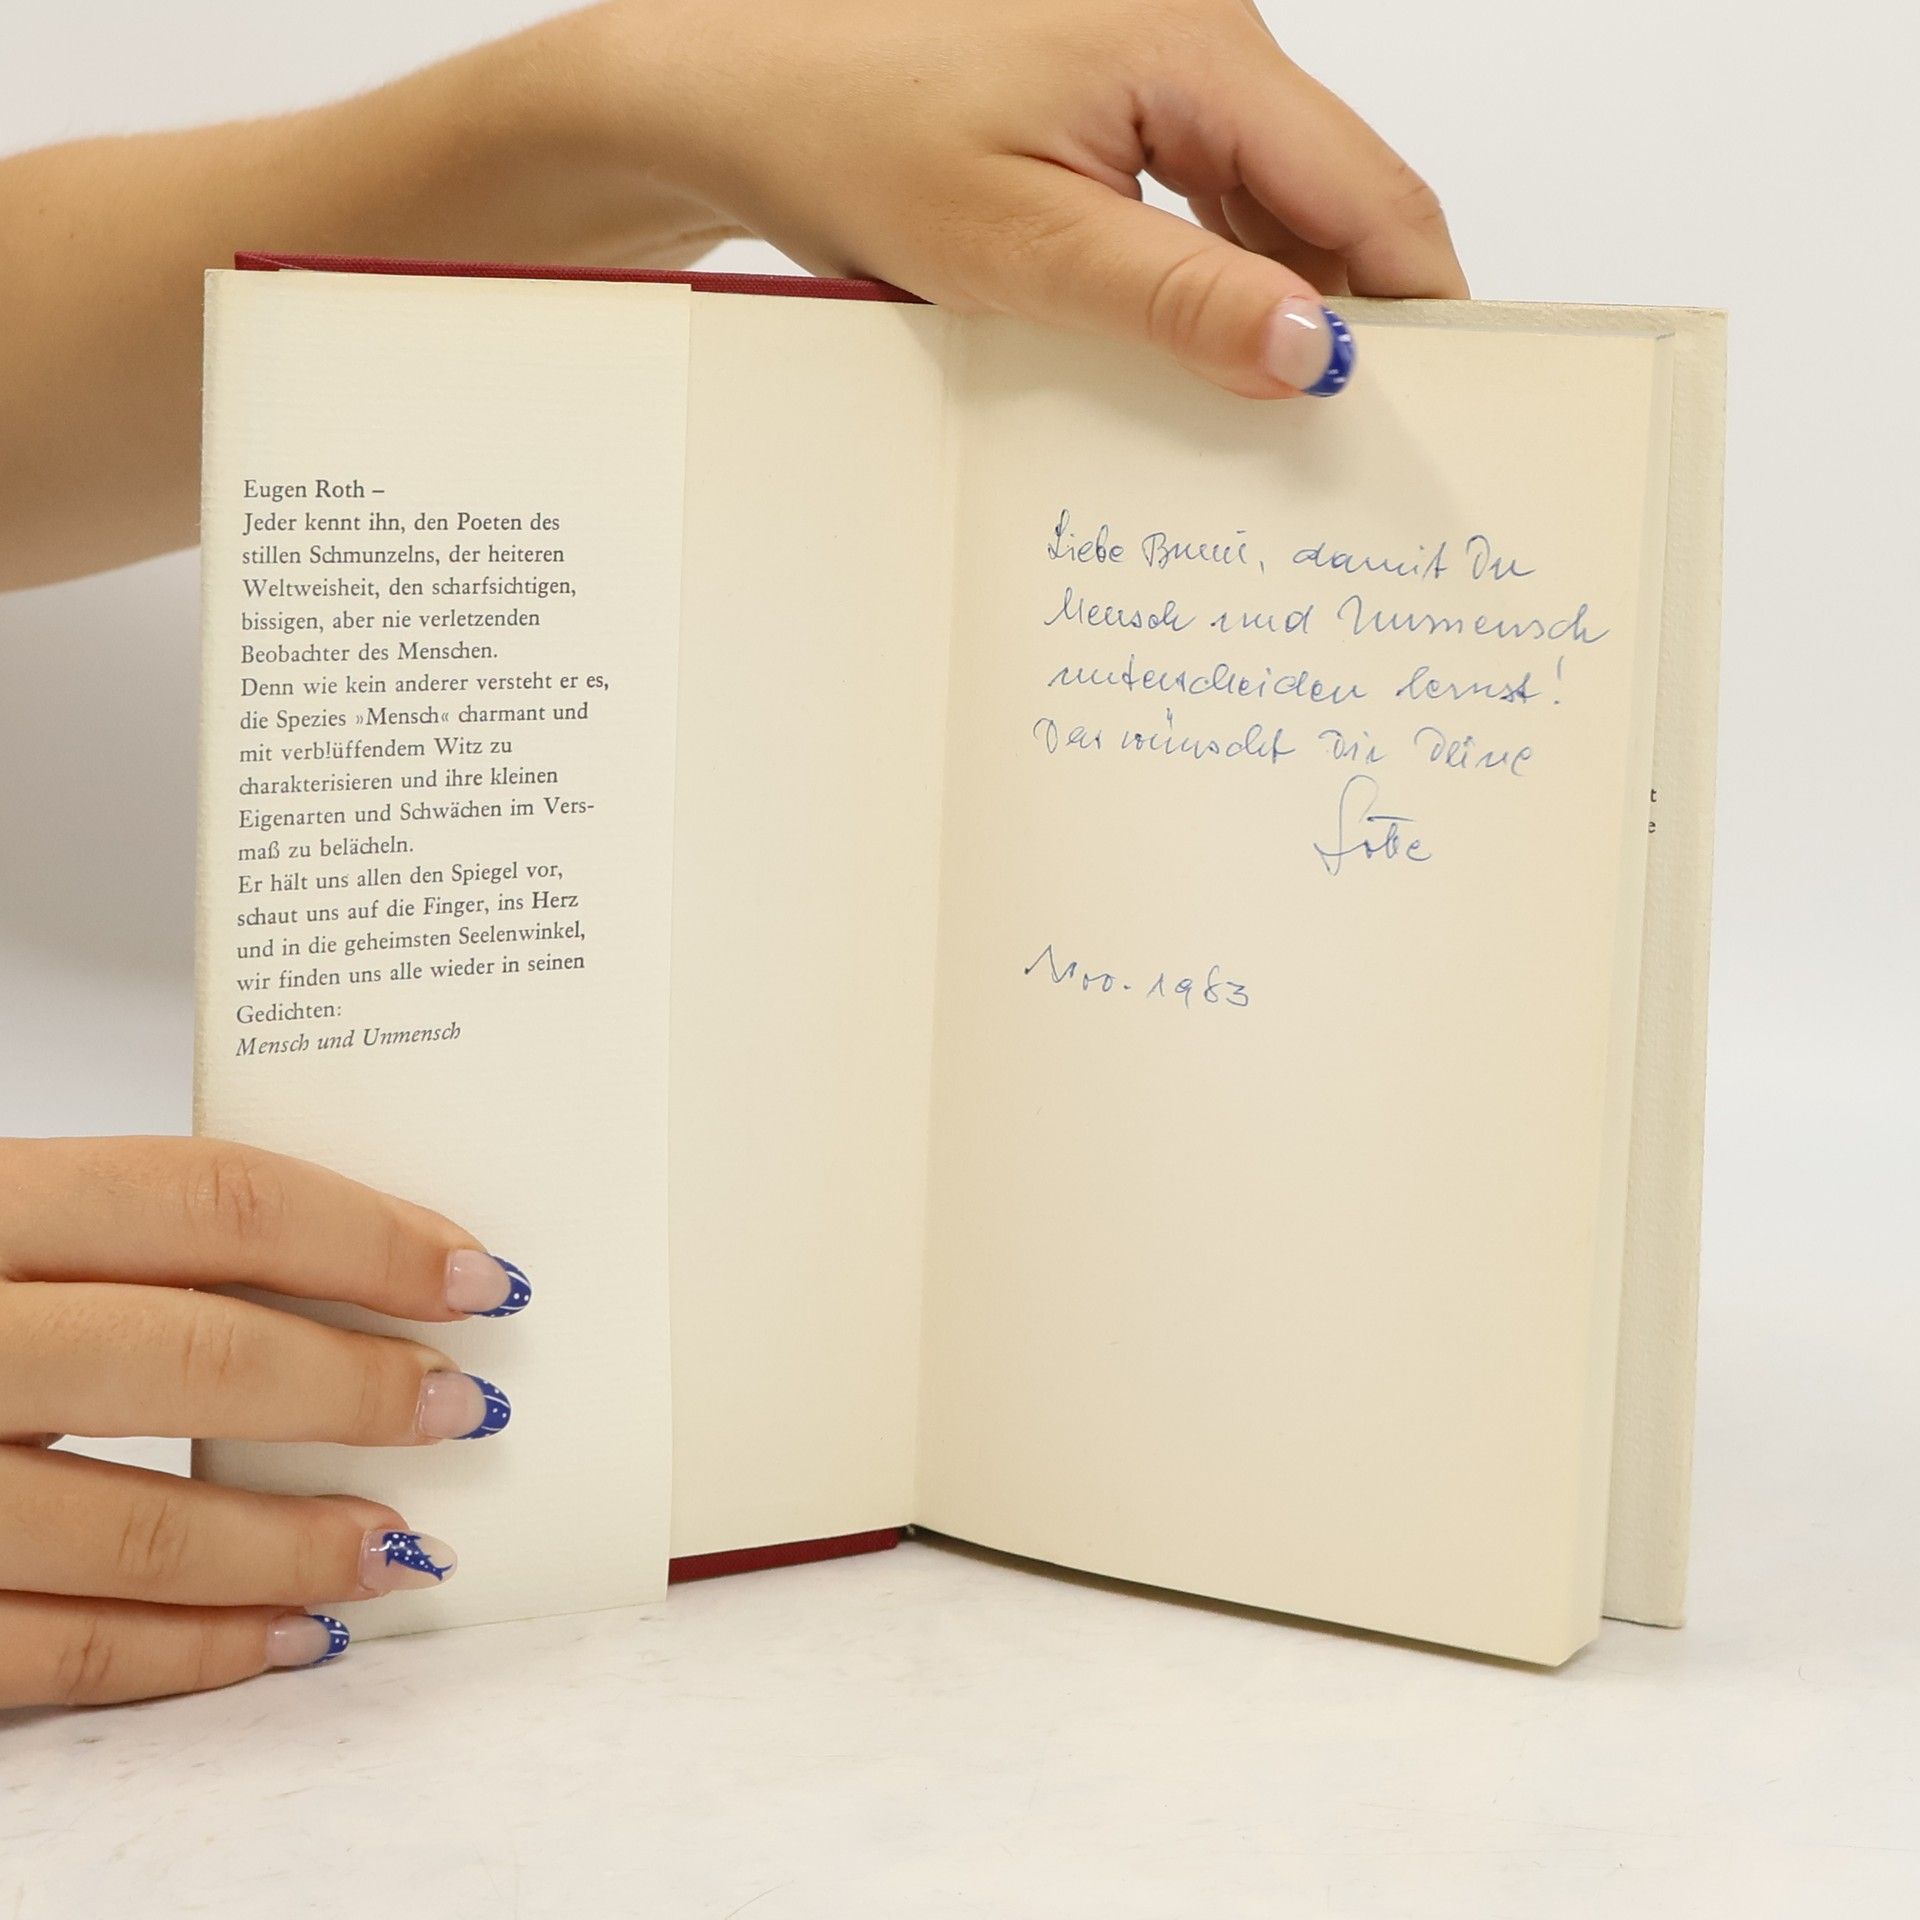 Eugen Roth –
Jeder kennt ihn, den Poeten des
stillen Schmunzelns, der heiteren
Weltweisheit, den scharfsichtigen,
bissigen, aber nie verletzenden
Beobachter des Menschen.
Denn wie kein anderer versteht er es,
die Spezies »Mensch« charmant und
mit verblüffendem Witz zu
charakterisieren und ihre kleinen
Eigenarten und Schwächen im Vers-
maß zu belächeln.
Er hält uns allen den Spiegel vor,
schaut uns auf die Finger, ins Herz
und in die geheimsten Seelenwinkel,
wir finden uns alle wieder in seinen
Gedichten:
Mensch und Unmensch
Liebe, damit Du
Mensch und Unmensch
unterscheiden lernst!
Das wünscht Dir Deine
Nov. 1983
t
e